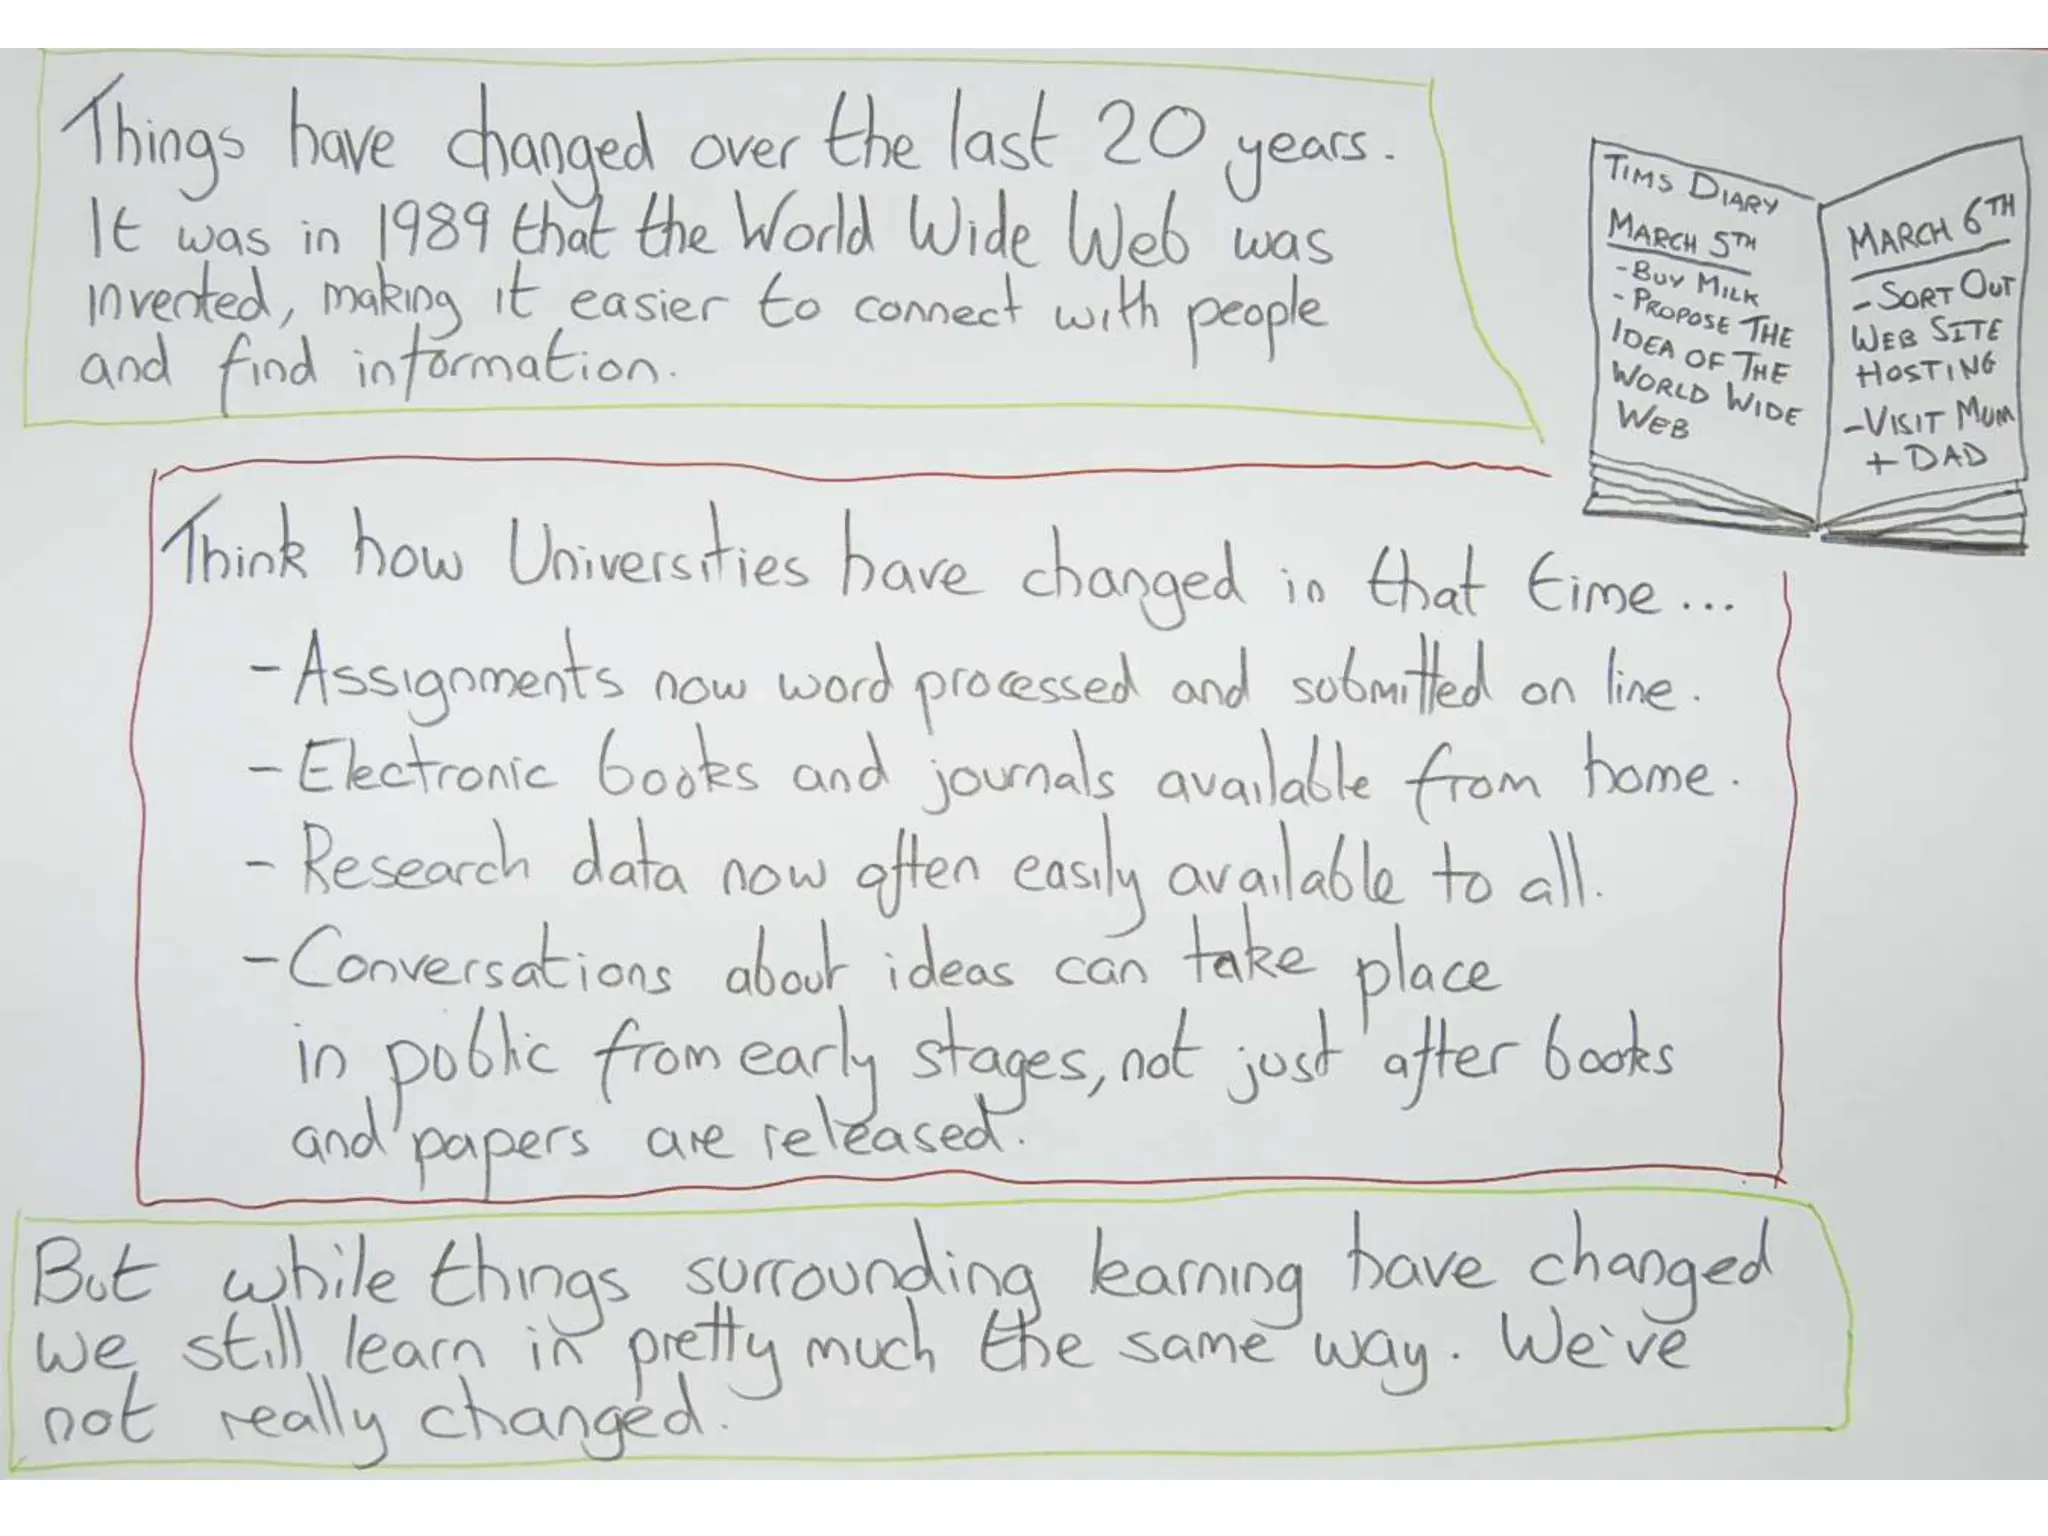 Things have changed over the last 20 years.
It was in 1989 that the World Wide Web was
invented, making it easier to connect with people
and find information.
TIMS DIARY
MARCH 5TH
- BUY MILK
- PROPOSE THE
IDEA OF THE
WORLD WIDE
WEB
MARCH 6TH
- SORT OUT
WEB SITE
HOSTING
- VISIT MUM
+ DAD
Think how Universities have changed in that time...
- Assignments now word processed and submitted on line.
- Electronic books and journals available from home.
- Research data now often easily available to all.
- Conversations about ideas can take place
in public from early stages, not just after books
and papers are released.
But while things surrounding learning have changed
we still learn in pretty much the same way. We've
not really changed.